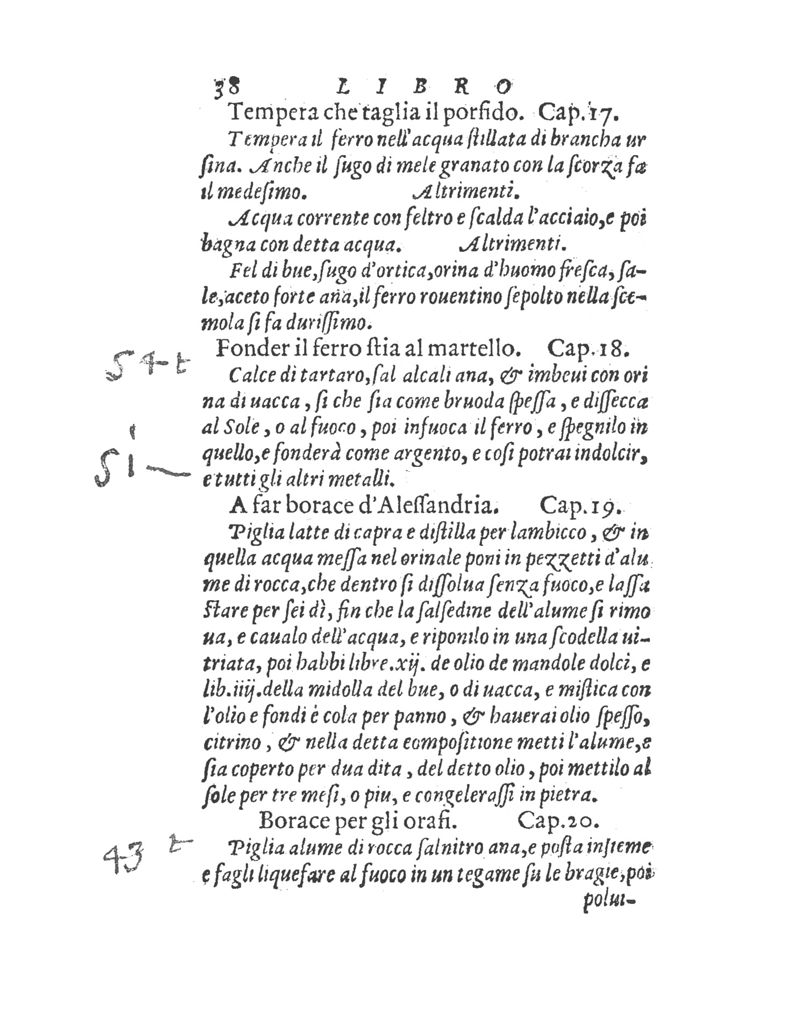 38 LIBRO
Tempera che taglia il porfido. Cap.17.
Tempera il ferro nell'acqua ſtillata di brancha ur
ſina. Anche il ſugo di mele granato con la ſcorza fa
il medeſimo. Altrimenti.
Acqua corrente con feltro e ſcalda l'acciaio,e poi
bagna con detta acqua. Altrimenti.
Fel di bue,ſugo d'ortica,orina d'huomo freſca, ſa-
le,aceto forte añа,il ferro rouentino ſepolto nella ſce-
mola ſi fa duriſſimo.
Fonder il ferro ſtia al martello. Cap.18.
54 t
Calce di tartaro,ſal alcali ana, & imbeui con ori
na di uacca, ſi che ſia come bruoda ſpeſſa, e diſſecca
al Sole, o al fuoco, poi infuoca il ferro, e ſpegnilo in
51
quello,e fonderà come argento, e coſi potrai indolcir,
e tutti gli altri metalli.
A far borace d'Aleſſandria. Cap.19.
Piglia latte di capra e diſtilla per lambicco, & in
quella acqua meſſa nel orinale poni in pezzetti d'alu
me di rocca,che dentro ſi diſſolua ſenza fuoco,e laſſa
ſtare per ſei dì, fin che la ſalſedine dell'alume ſi rimo
ua, e caualo dell'acqua, e riponilo in una ſcodella ui-
triata, poi habbi libre.xij. de olio de mandole dolci, e
lib.iiij.della midolla del bue, o di uacca, e miſtica con
l'olio e fondi è cola per panno, & hauerai olio ſpeſſo,
citrino, & nella detta compoſitione metti l'alume,e
ſia coperto per dua dita, del detto olio, poi mettilo al
ſole per tre meſi, o piu, e congeleraſſi in pietra.
Borace per gli orafi. Cap.20.
43 t
Piglia alume di rocca ſalnitro ana,e poſta inſieme
e fagli liquefare al fuoco in un tegame ſu le bragie,poi
polui-